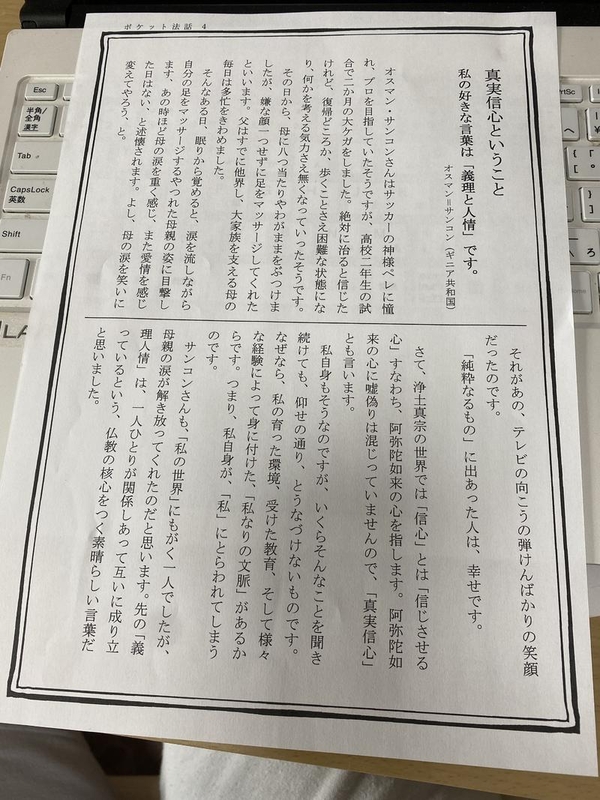 ポケット法話 4
真実信心ということ
私の好きな言葉は「義理と人情」です。
オスマン＝サンコン（ギニア共和国）
オスマン・サンコンさんはサッカーの神様ペレに憧
れ、プロを目指していたそうですが、高校二年生の試
合で二か月の大ケガをしました。絶対に治ると信じた
けれど、復帰どころか、歩くことさえ困難な状態にな
り、何かを考える気力さえ無くなっていったそうです。
その日から、母に八つ当たりやわがままをぶつけま
したが、嫌な顔一つせずに足をマッサージしてくれた
といいます。父はすでに他界し、大家族を支える母の
毎日は多忙をきわめました。
そんなある日、眠りから覚めると、涙を流しながら
自分の足をマッサージするやつれた母親の姿に目撃し
ます、あの時ほど母の涙を重く感じ、また愛情を感じ
た日はない、と述懐されます。よし、母の涙を笑いに
変えてやろう、と。
それがあの、テレビの向こうの弾けんばかりの笑顔
だったのです。
「純粋なるもの」に出あった人は、幸せです。
さて、浄土真宗の世界では「信心」とは「信じさせる
心」すなわち、阿弥陀如来の心を指します。阿弥陀如
来の心に嘘偽りは混じっていませんので、「真実信心」
とも言います。
私自身もそうなのですが、いくらそんなことを聞き
続けても、仰せの通り、とうなづけないものです。
なぜなら、私の育った環境、受けた教育、そして様々
な経験によって身に付けた、「私なりの文脈」があるか
らです。つまり、私自身が、「私」にとらわれてしまう
のです。
サンコンさんも、「私の世界」にもがく一人でしたが、
母親の涙が解き放ってくれたのだと思います。先の「義
理人情」は、一人ひとりが関係しあって互いに成り立
っているという、仏教の核心をつく素晴らしい言葉だ
と思いました。
Esc
半角/
全角
漢字
Tab
CapsLock
英数
Shift
Fn